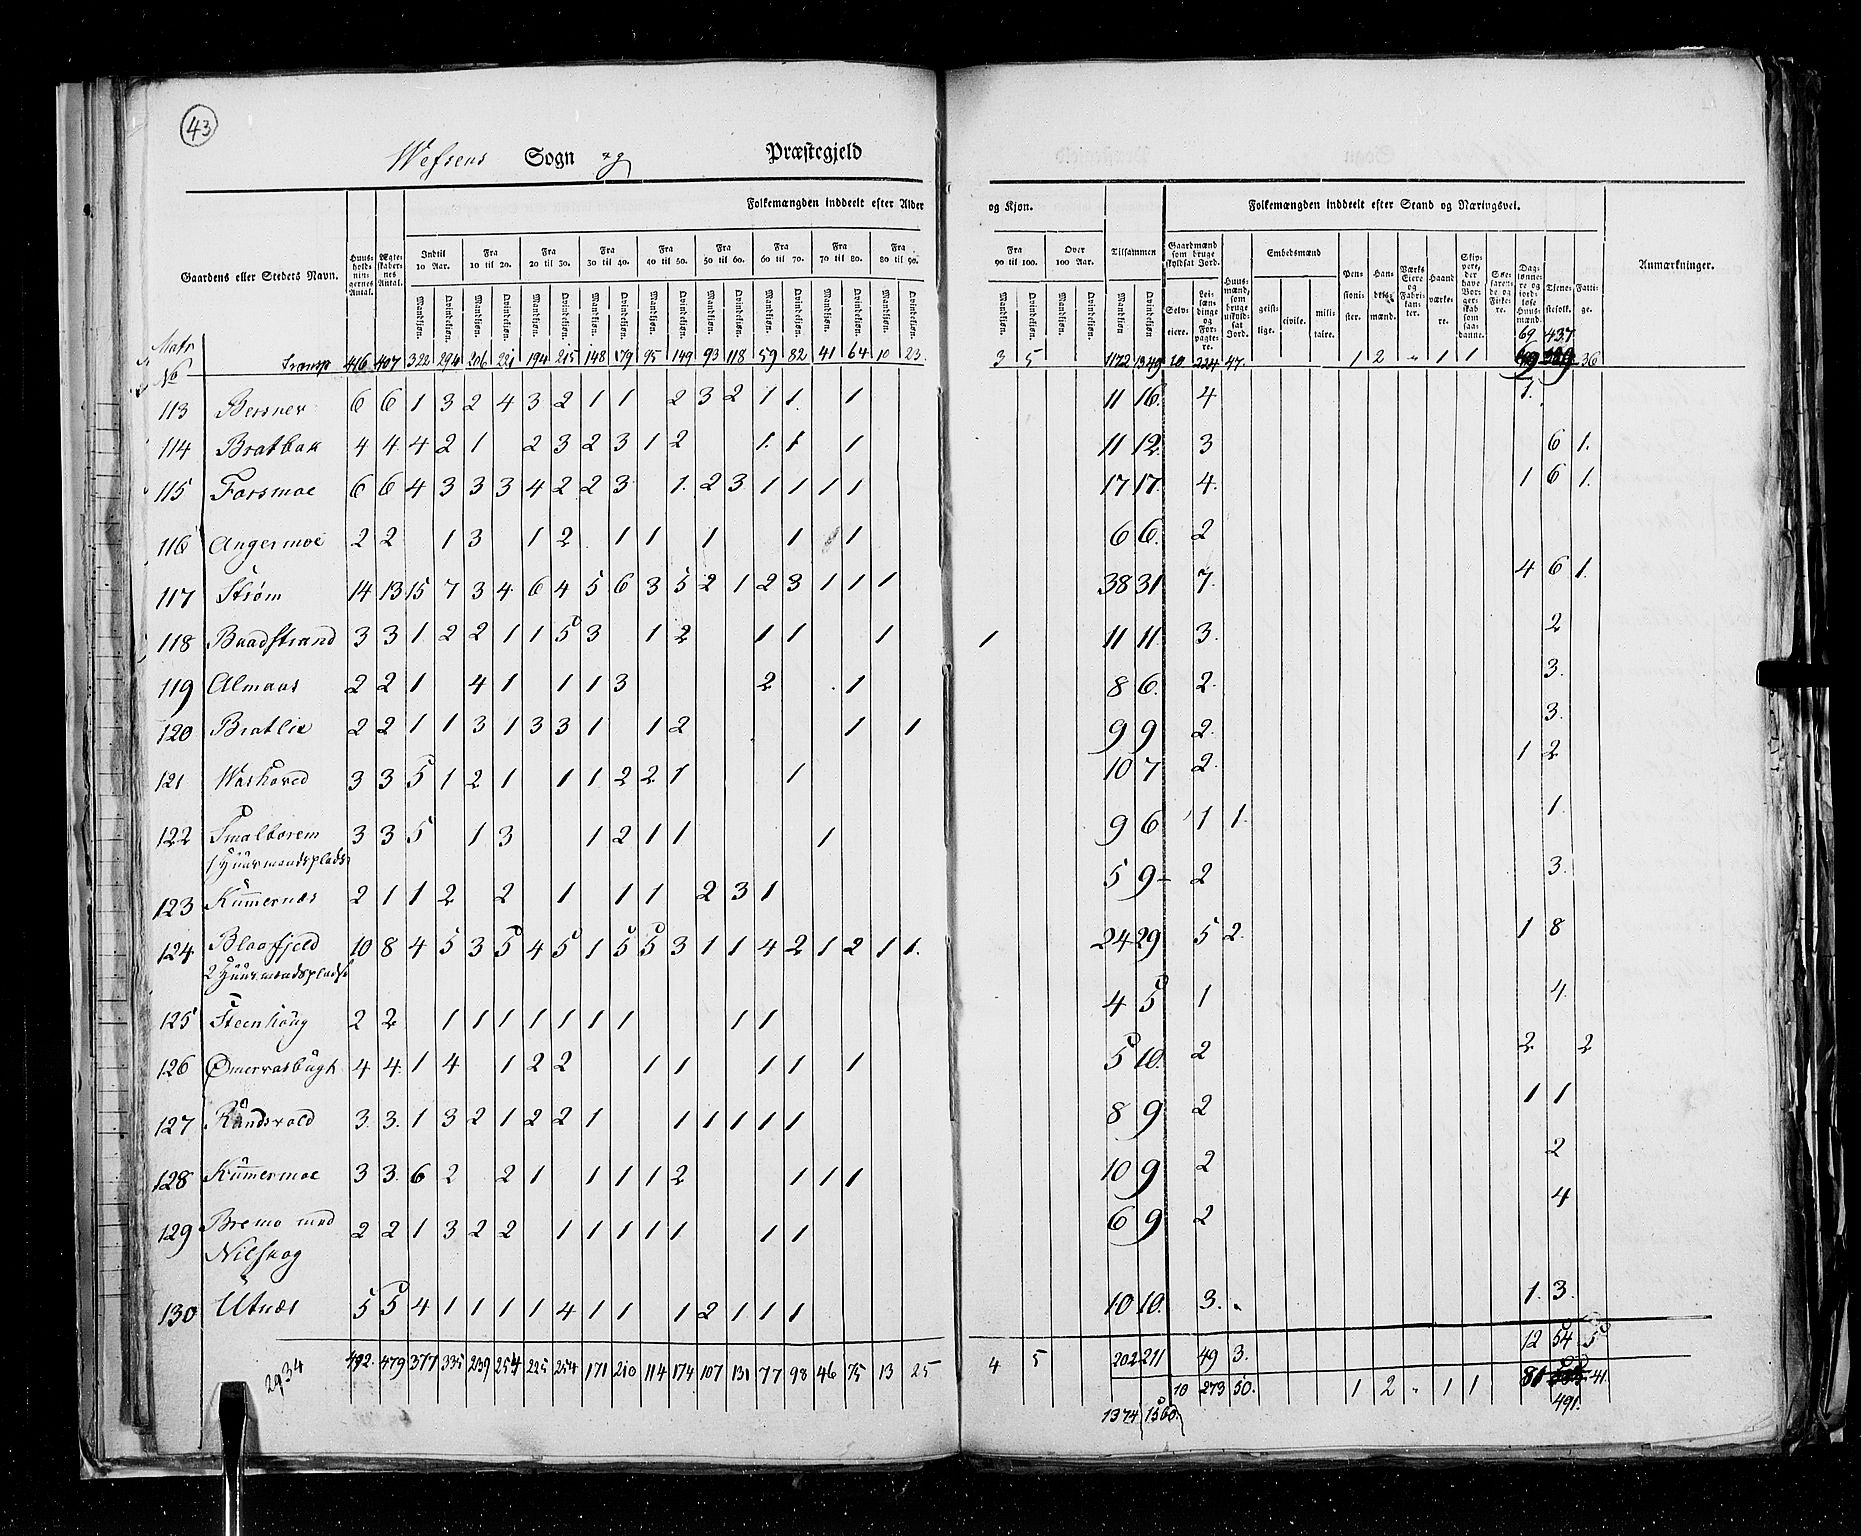 43
Wefsens Sogn og Præstegjeld
Folkemængden inddeelt efter Alder og Kjøn. Tilsammen Folkemængden inddeelt efter Stand og Næringsvei.
Gaardens eller Stedets Navn. Huusholdningernes Antal. Ægteskabernes Antal. Indtil 10 Aar. Fra 10 til 20. Fra 20 til 30. Fra 30 til 40. Fra 40 til 50. Fra 50 til 60. Fra 60 til 70. Fra 70 til 80. Fra 80 til 90. Fra 90 til 100. Over 100 Aar. Gaardmænd som bruge skyldsat Jord. Huusmænd, som bruge uskyldsat Jord. Embedsmænd Pensionister. Handelsmænd. Værks Eiere og Fabrikanter. Haandværkere. Skippere, der have Borgerskab som saadanne. Søefarende og Fiskere. Daglønnere og jordløse Huusmænd. Tjenestefolk. Fattige. Anmærkninger.
Mandkjøn. Qvindekjøn. Selveiere. Leilændinge og Forpagtere. geistlige. civile. militaire.
Matr No
69 437
Transp 416 407 322 294 206 221 194 215 148 179 95 149 93 118 59 82 41 64 10 23. 3 5 1172 1349 10 224 47. 1 2 " 1 1 36
113 Besner 6 6 1 3 2 4 3 2 1 1 2 3 2 1 1. 1 11 16. 4 1.
114 Bratbak 4 4. 4 2 1 2 3 2 3 1 2 1. 1 1 11 12. 3 6 1.
115 Forsmoe 6 6 4 3 3 3 4 2 2 3 1. 2 3 1 1 1 1 17 17. 4. 1 6 1.
116 Angermoe 2 2 1 3 1 2 1 1 1 1 1 6 6. 2
117 Strøm 14 13 15 7 3 4. 6 4 5 6 3 5 2 1 2 3 1 1 1 38 31 7. 4 6 1.
118 Baadstrand 3 3 1. 2 2 1 1 5 3 1 2 1 1 1 1 11 11. 3. 2
119 Almaas 2 2 1 4 1 1 1 3 2 1 8 6. 2. 3.
120 Bratlie 2 2 1 1 3 1 3 3 1 1 2 1 1 9 9 2. 3.
121 3 3 5 1 2 1 1 1 2 2 1 1 10 7 2. 1 2
122 Smalborem 3 3 5 1 3 1 2 1 1 1 9 6 1 1. 1.
1 Huusmandsplads
123 Kummernæs 2 1 1 2 2 1 1 1 2 3 1 5 9- 2 3.
124. Blaafjeld 10 8 4 5 3 5 4 5 1 5 5 3 1 1 4 2 1 2 1 1. 24 29 5 2. 1 8
2 Huusmandspladse
125 Steenhoug 2 2 1 1 1 1 1 1 1 1 1 4 5 1 4
126 4 4. 1 4 1 2 2 1 1 1 1 1 5 10. 2 2 2
127 3. 3. 1 3 2 1 2 2 1 1 1 1 1 1 8 9 2 1 1
128 Kummermoe 3 3. 6 2 2 1 1 1 1 2 1 1 1 10 9 2 2
129 Bremo med 2 2 1 3 2 2 1 1 1 1 1 1 1 6 9 2 4
Nilskog
130 Utnæs 5 5 4 1 1 1 1 4 1 1 1 2 1 1 1 10 10. 3. 1. 3.
202 211 49 3. 12 54 5
2934 492. 479 377 335 239 254 225 254 171 210 114 174 107 131 77 98 46 75 13 25 4 5
10 273 50. 1 2 " 1 1 81 41.
1374 1560. 491.